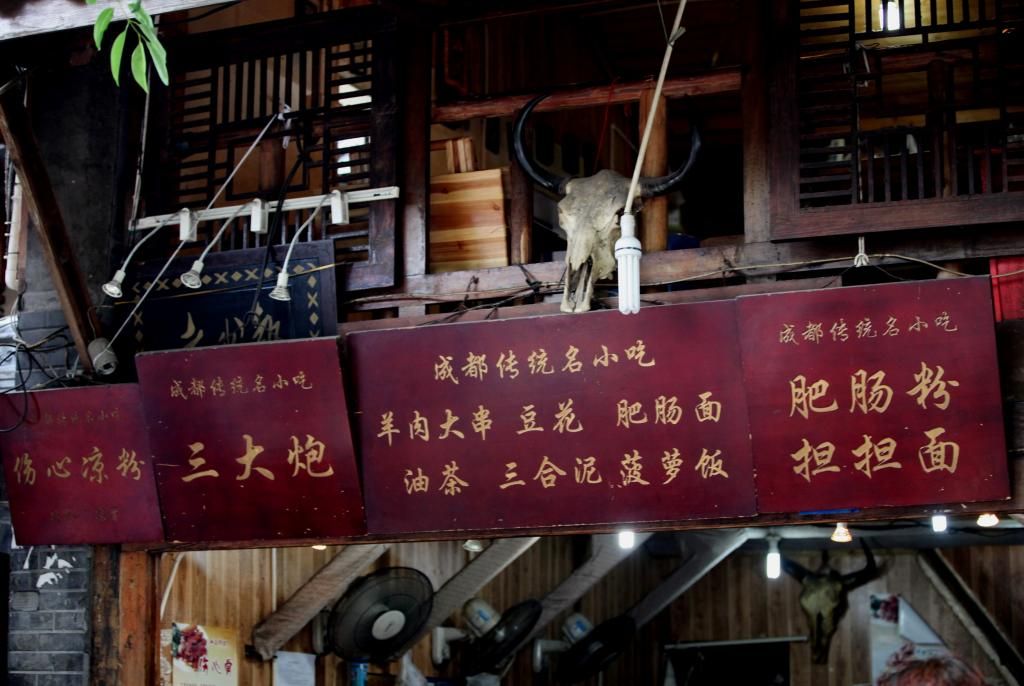 成都传统名小吃
伤心凉粉
成都传统名小吃
三大炮
成都传统名小吃
羊肉大串 豆花 肥肠面
油茶 三合泥 菠萝饭
成都传统名小吃
肥肠粉
担担面